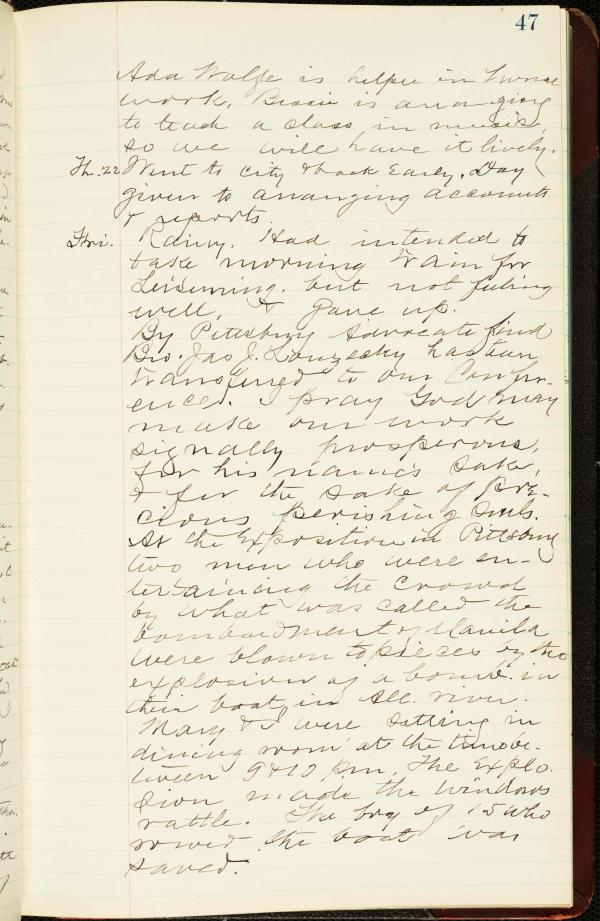 47
Ada Wolfe is helper in home
work. Bessie is arranging
to teach a class in music
so we will have it lively.
Th. 22 Went to city & back Early. Day
given to arranging accounts
& reports.
Fri. Rainy. Had intended to
take morning train for
Leisenring. but not feeling
well, I gave up.
By Pittsburg Advocate find
Bro. Jas J. has been
transferred to our Confer-
ence. I pray God may
make our work
signally prosperous,
for his name's sake,
& for the sake of pre-
cious perishing souls.
At the Exposition in Pittsburg
two men who were en-
tertaining the crowd
by what was called the
bombardment of Manila
were blown to pieces by the
explosion of a bomb in
their boat, in All. river.
Mary & I were sitting in
dining room at the time be-
tween 9 & 10 pm. The Explo-
sion made the windows
rattle. The boy of 15 who
rowed the boat was
saved.